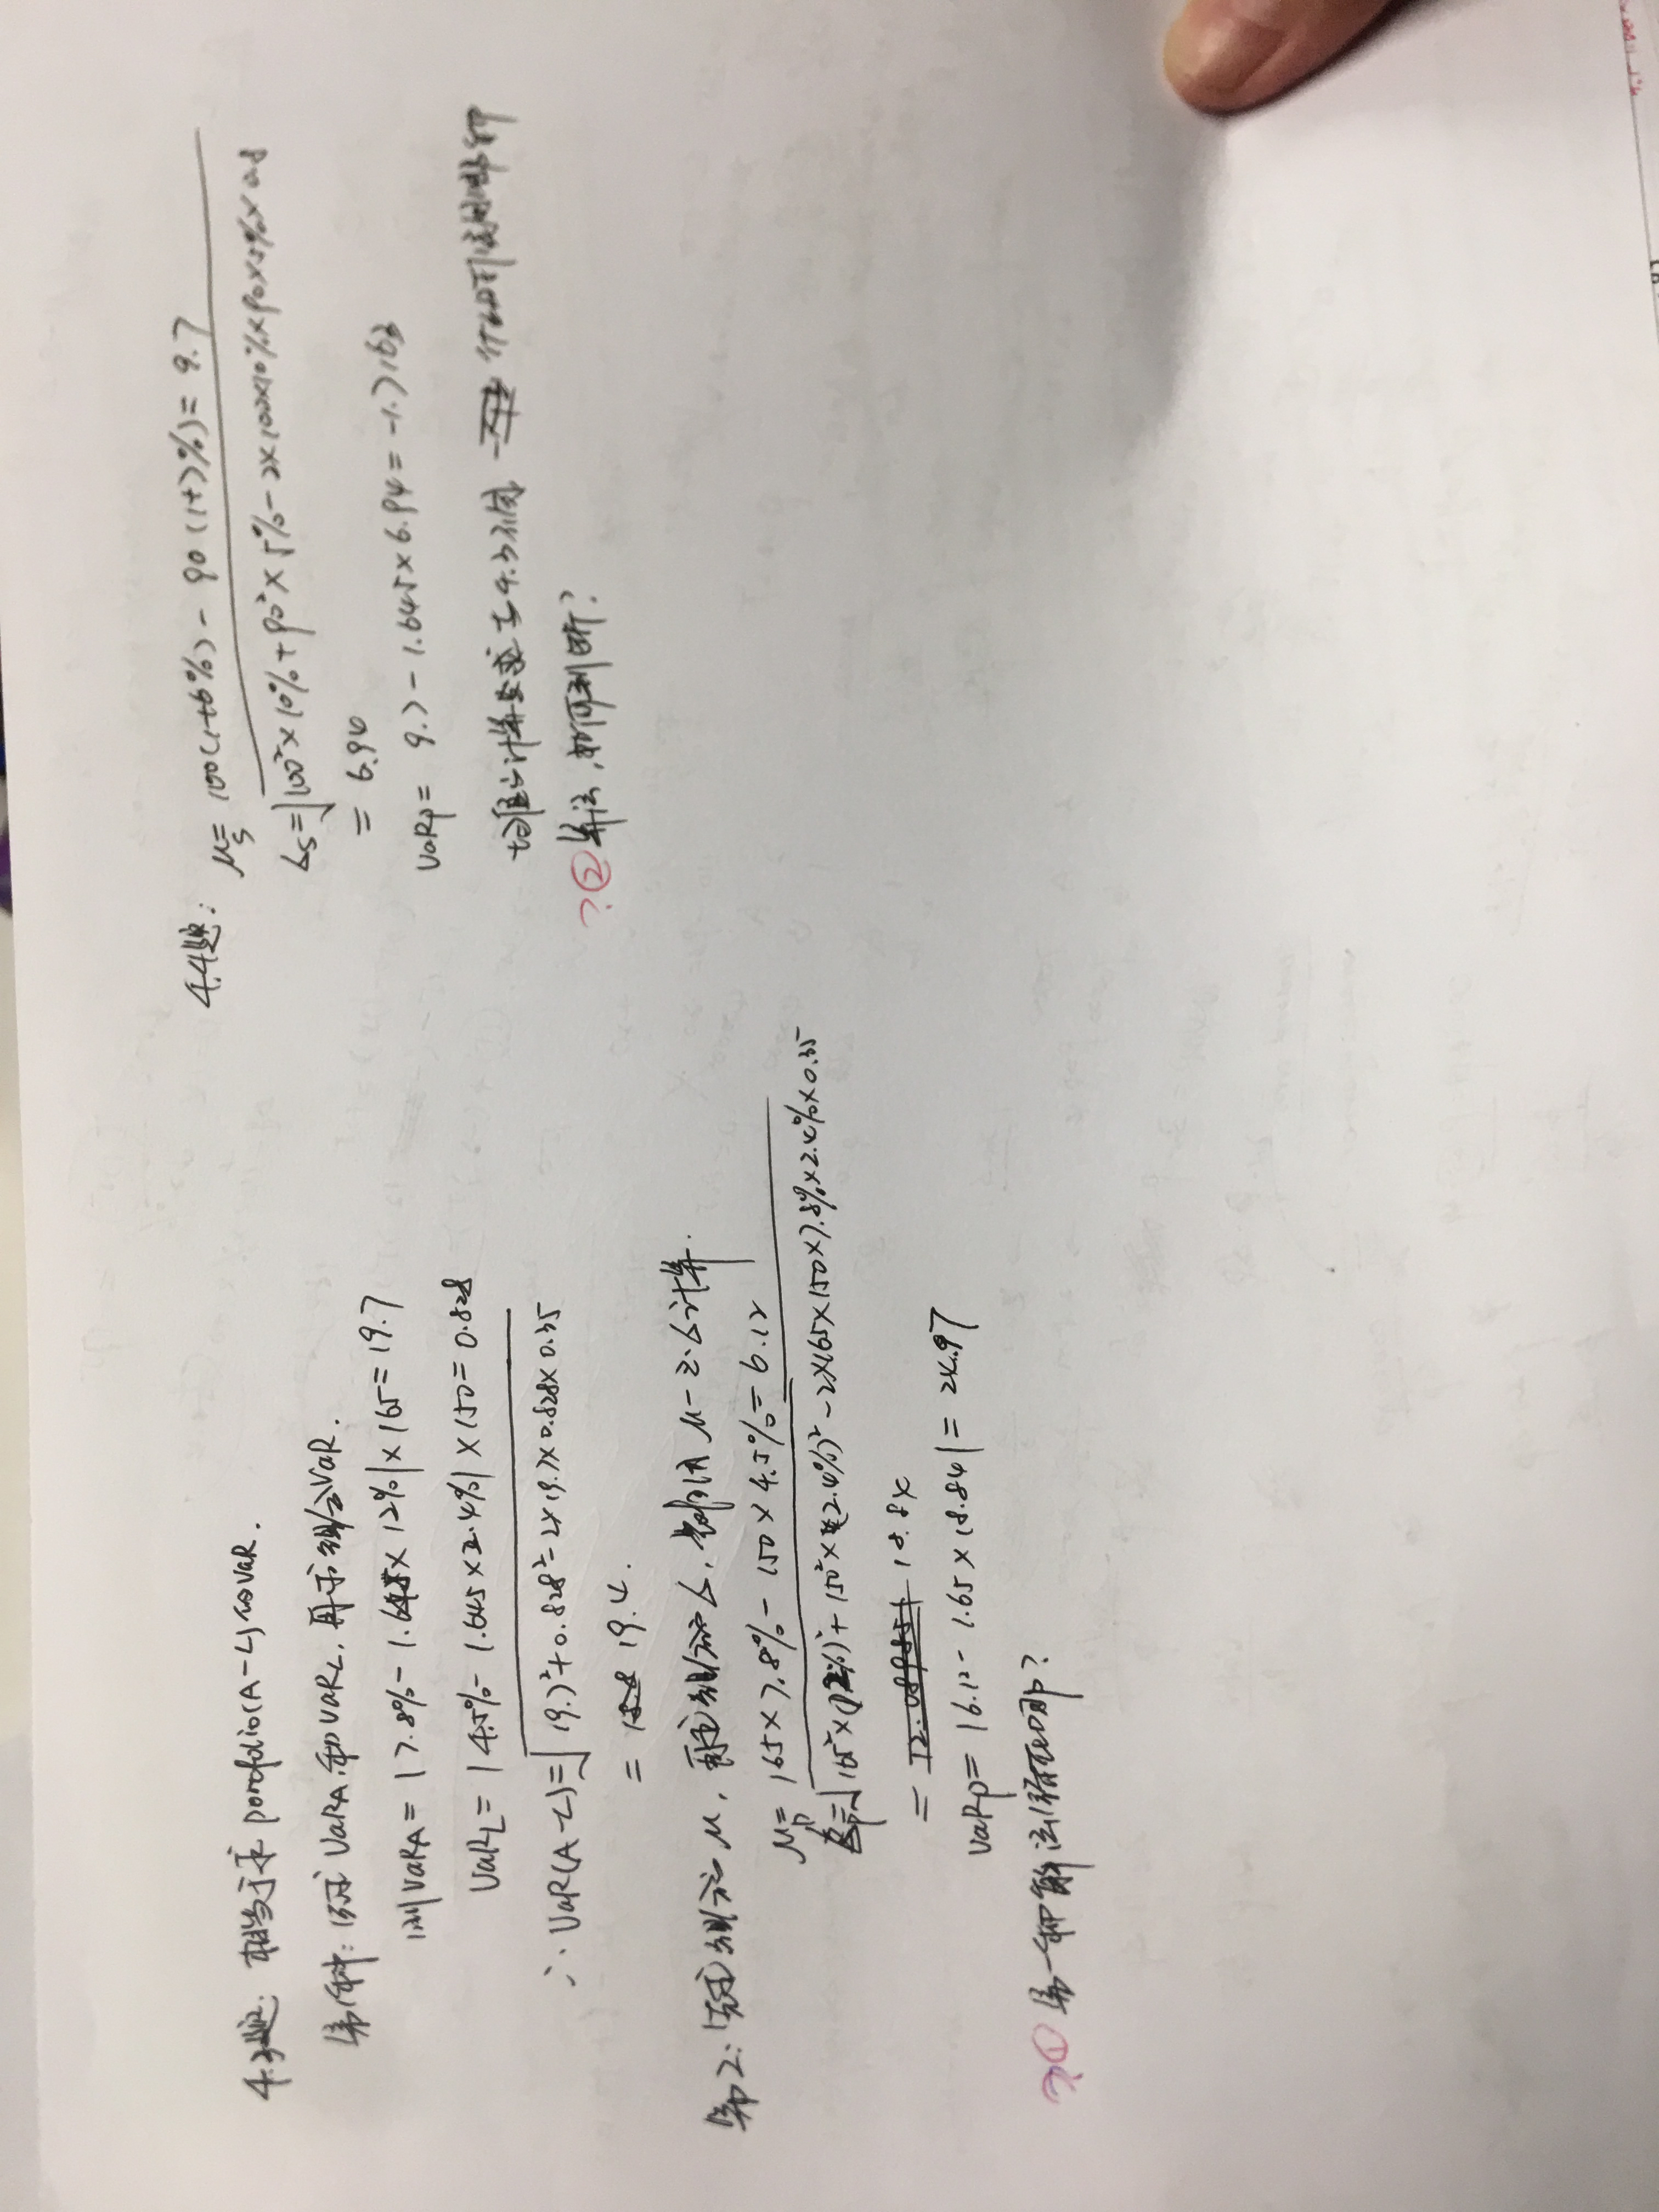 4.3题: 相当于求 porofolio(A-L)的VaR.
第1种: 1分别求 VaRA和VaRL, 再求组合VaR.
则VaRA = |7.8% - 1.645 × 12%| × 165 = 19.7
VaRL = |4.5% - 1.645 × 2.4%| × 150 = 0.828
∴ VaR(A-L) = √19.7² + 0.828² - 2×19.7×0.828×0.35
= 19.4.
第2: 1先求组合 μ, 再求组合 σ, 利用 μ-z·σ计算.
μp = 165×7.8% - 150×4.5% = 6.12
σp = √165²×(12%)² + 150²×(2.4%)² - 2×165×150×7.8%×2.4%×0.35
= 18.84
VaRp = |6.12 - 1.65×18.84| = 24.97
?① 第一种解法错在哪?
4.4题: μs = 100(1+6%) - 90(1+7%) = 9.7
σs = √100²×10% + 90²×5% - 2×100×10%×90×5%×0.8
= 6.94
VaRp = 9.7 - 1.645×6.94 = -1.7163
?② 算法, 如何判断?